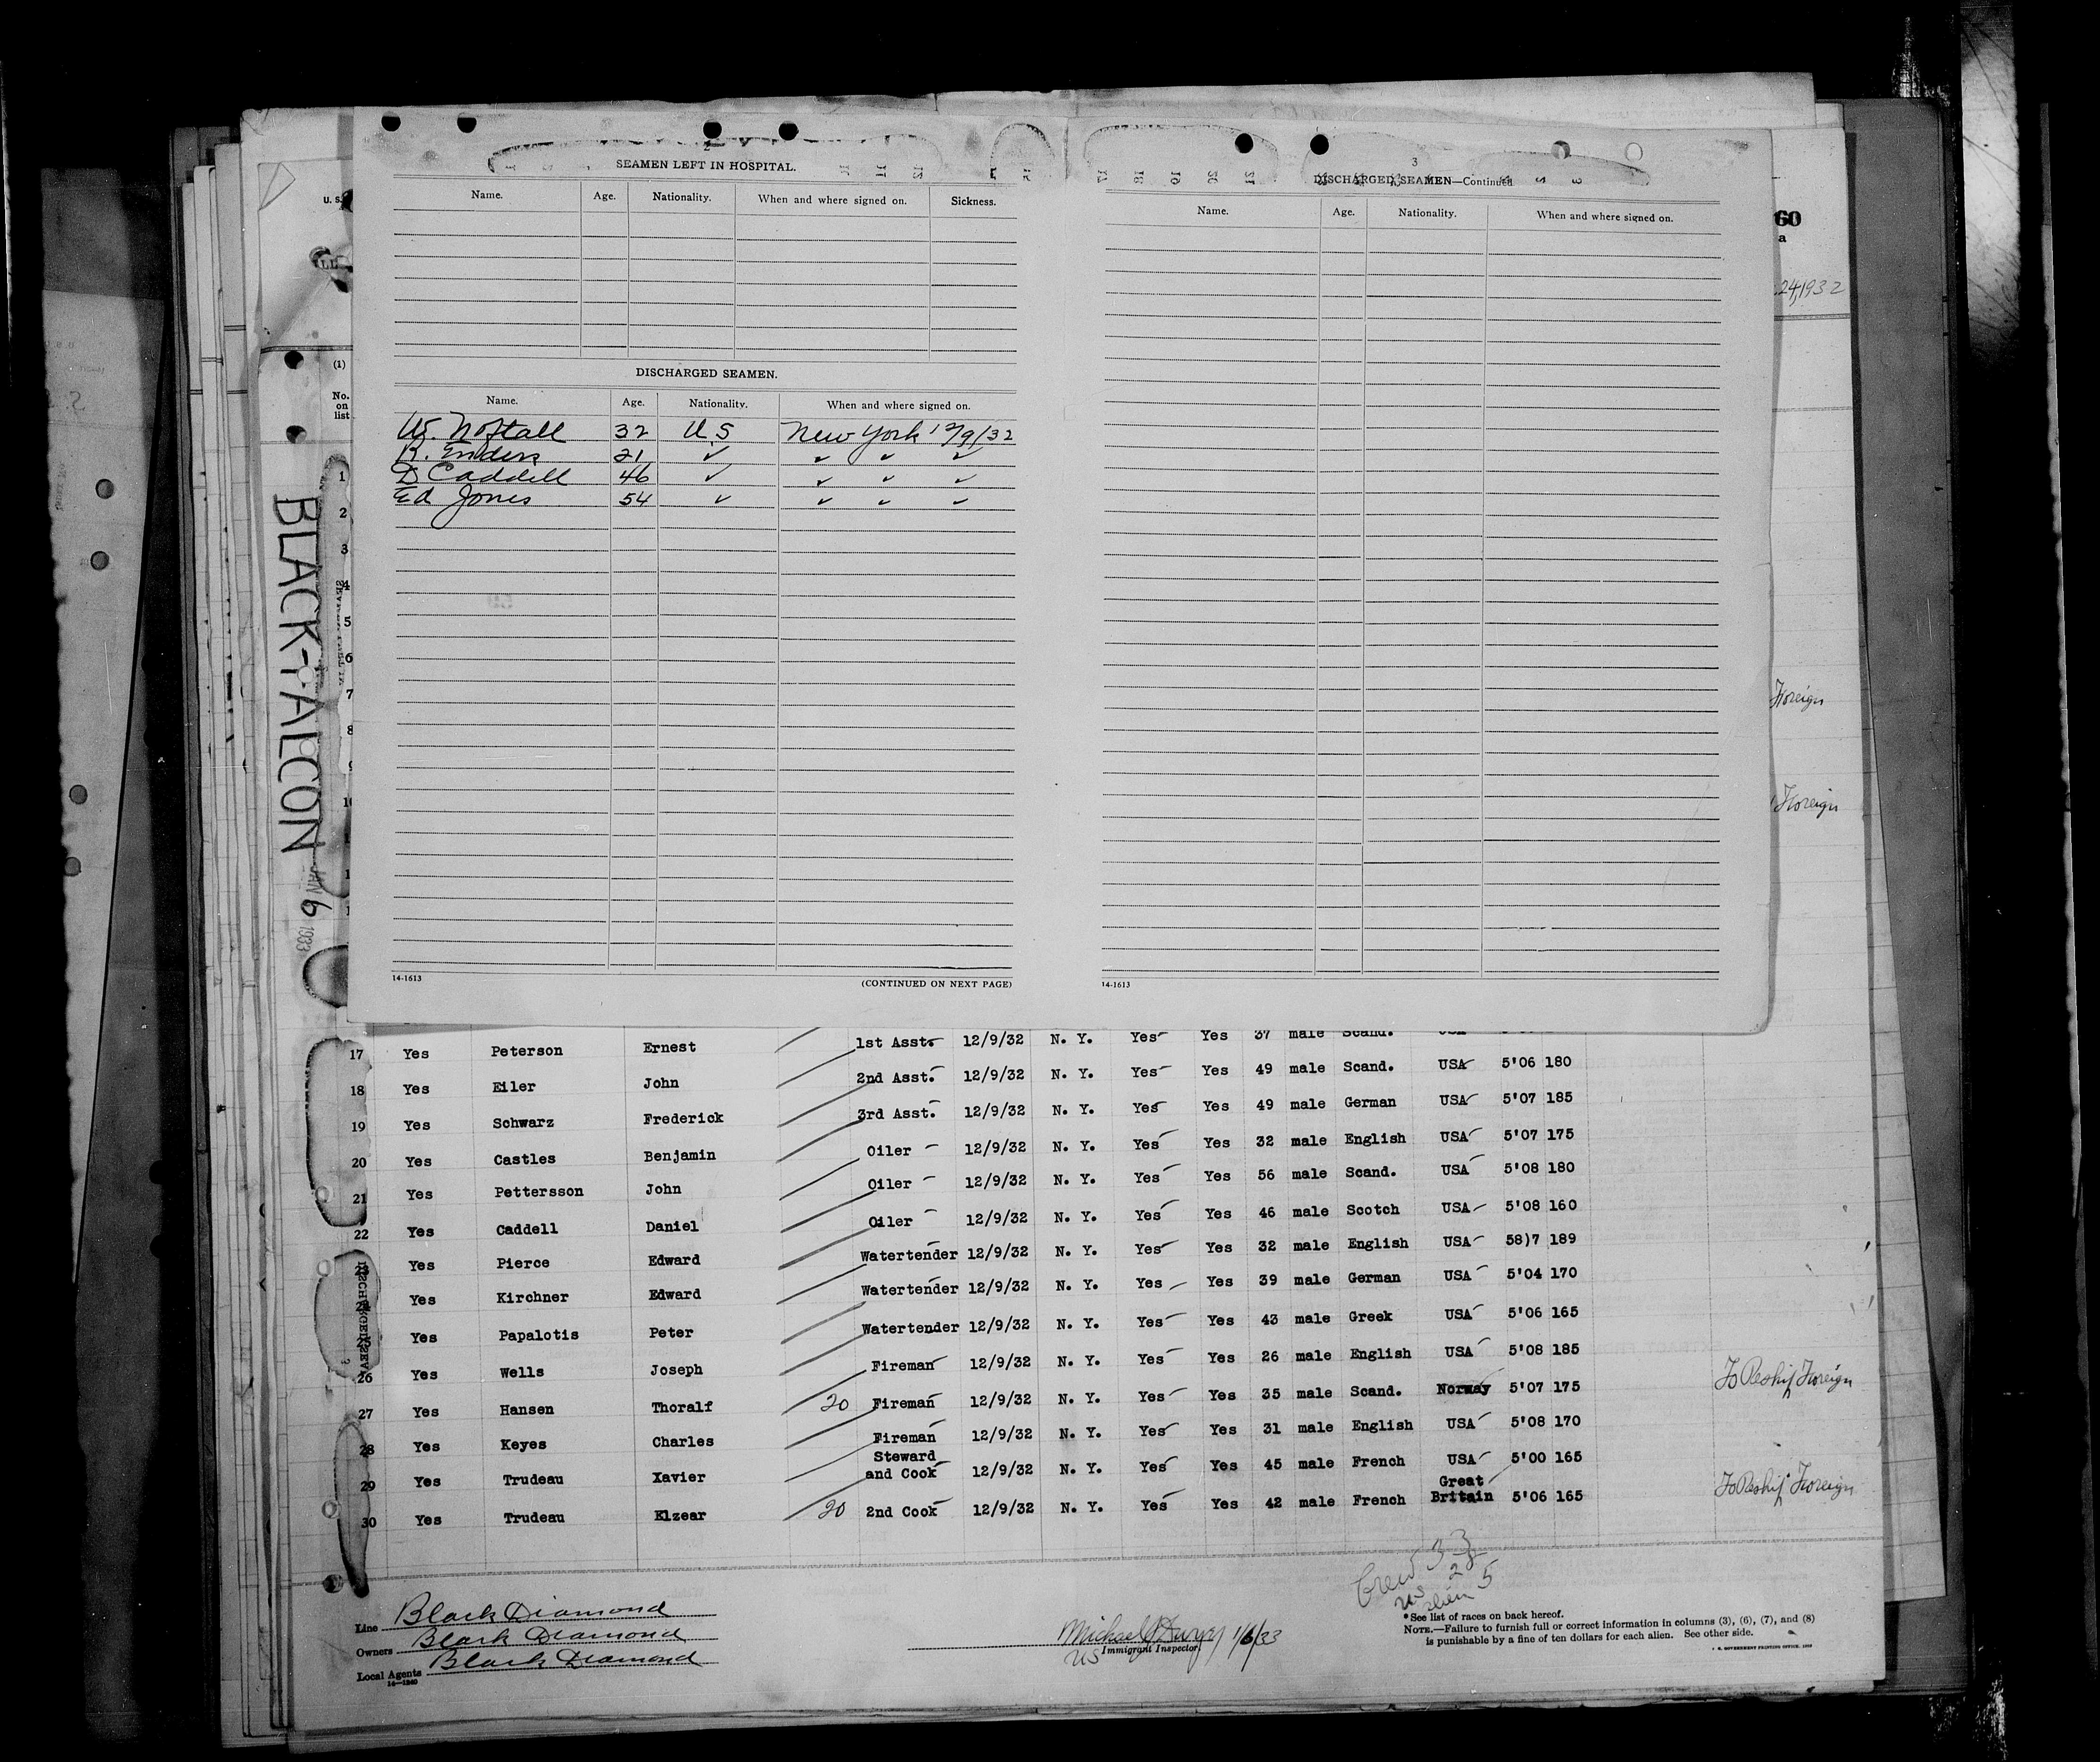 2
SEAMEN LEFT IN HOSPITAL.
Name. Age. Nationality. When and where signed on. Sickness.
DISCHARGED SEAMEN.
Name. Age. Nationality. When and where signed on.
W. Noftall 32 U.S New York 12/9/32
R. Enders 21 ✓ ✓ ✓ ✓
D Caddell 46 ✓ ✓ ✓ ✓
Ed Jones 54 ✓ ✓ ✓ ✓
14-1613
(CONTINUED ON NEXT PAGE)
3
DISCHARGED SEAMEN—Continued
Name. Age. Nationality. When and where signed on.
14-1613
U. S.
(1)
No. on list
1
2
3
4
5
6
7
8
BLACK FALCON JAN 6 1933
60
a
24, 1932
Foreign
Foreign
17 Yes Peterson Ernest 1st Asst. 12/9/32 N. Y. Yes Yes 37 male Scand.
18 Yes Eiler John 2nd Asst. 12/9/32 N. Y. Yes Yes 49 male Scand. USA 5'06 180
19 Yes Schwarz Frederick 3rd Asst. 12/9/32 N. Y. Yes Yes 49 male German USA 5'07 185
20 Yes Castles Benjamin Oiler 12/9/32 N. Y. Yes Yes 32 male English USA 5'07 175
21 Yes Pettersson John Oiler 12/9/32 N. Y. Yes Yes 56 male Scand. USA 5'08 180
22 Yes Caddell Daniel Oiler 12/9/32 N. Y. Yes Yes 46 male Scotch USA 5'08 160
23 Yes Pierce Edward Watertender 12/9/32 N. Y. Yes Yes 32 male English USA 58)7 189
24 Yes Kirchner Edward Watertender 12/9/32 N. Y. Yes Yes 39 male German USA 5'04 170
25 Yes Papalotis Peter Watertender 12/9/32 N. Y. Yes Yes 43 male Greek USA 5'06 165
26 Yes Wells Joseph Fireman 12/9/32 N. Y. Yes Yes 26 male English USA 5'08 185
27 Yes Hansen Thoralf 20 Fireman 12/9/32 N. Y. Yes Yes 35 male Scand. Norway 5'07 175 To Reship Foreign
28 Yes Keyes Charles Fireman 12/9/32 N. Y. Yes Yes 31 male English USA 5'08 170
29 Yes Trudeau Xavier Steward and Cook 12/9/32 N. Y. Yes Yes 45 male French USA 5'00 165
30 Yes Trudeau Elzear 20 2nd Cook 12/9/32 N. Y. Yes Yes 42 male French Great Britain 5'06 165 To Reship Foreign
Crew 33
US 28
alien 5
Line Black Diamond
Owners Black Diamond
Local Agents Black Diamond
14—1240
Michael J Dwyer 1/6/33
US Immigrant Inspector.
* See list of races on back hereof.
NOTE.—Failure to furnish full or correct information in columns (3), (6), (7), and (8)
is punishable by a fine of ten dollars for each alien. See other side.